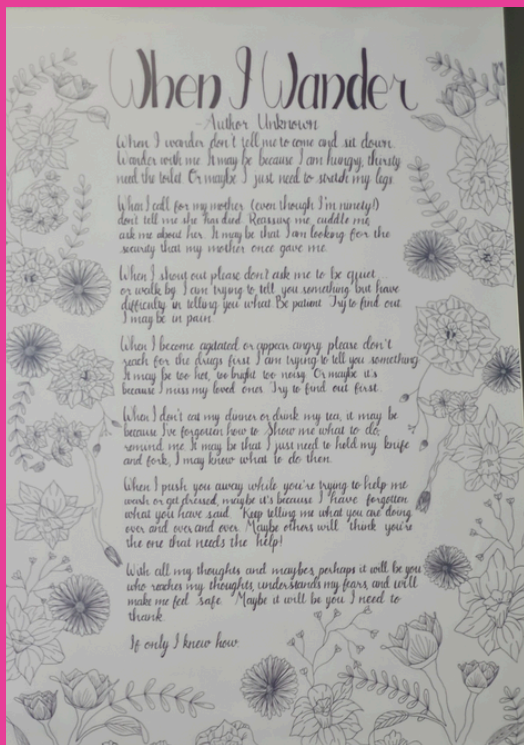 When I Wander
-Author Unknown
When I wander don't tell me to come and sit down.
Wander with me. It may be because I am hungry, thirsty
need the toilet. Or maybe I just need to stretch my legs.
When I call for my mother (even though I'm ninety!)
don't tell me she has died. Reassure me, cuddle me,
ask me about her. It may be that I am looking for the
security that my mother once gave me.
When I shout out please don't ask me to be quiet...
or walk by. I am trying to tell you something, but have
difficulty in telling you what. Be patient. Try to find out.
I may be in pain.
When I become agitated or appear angry, please don't
reach for the drugs first. I am trying to tell you something.
It may be too hot, too bright too noisy. Or maybe it's
because I miss my loved ones. Try to find out first.
When I don't eat my dinner or drink my tea, it may be
because I've forgotten how to. Show me what to do,
remind me. It may be that I just need to hold my knife
and fork, I may know what to do then.
When I push you away while you're trying to help me
wash or get dressed, maybe it's because I have forgotten
what you have said. Keep telling me what you are doing
over and over and over. Maybe others will think you're
the one that needs the help!
With all my thoughts and maybes, perhaps it will be you
who reaches my thoughts, understands my fears, and will
make me feel safe. Maybe it will be you I need to
thank.
If only I knew how.